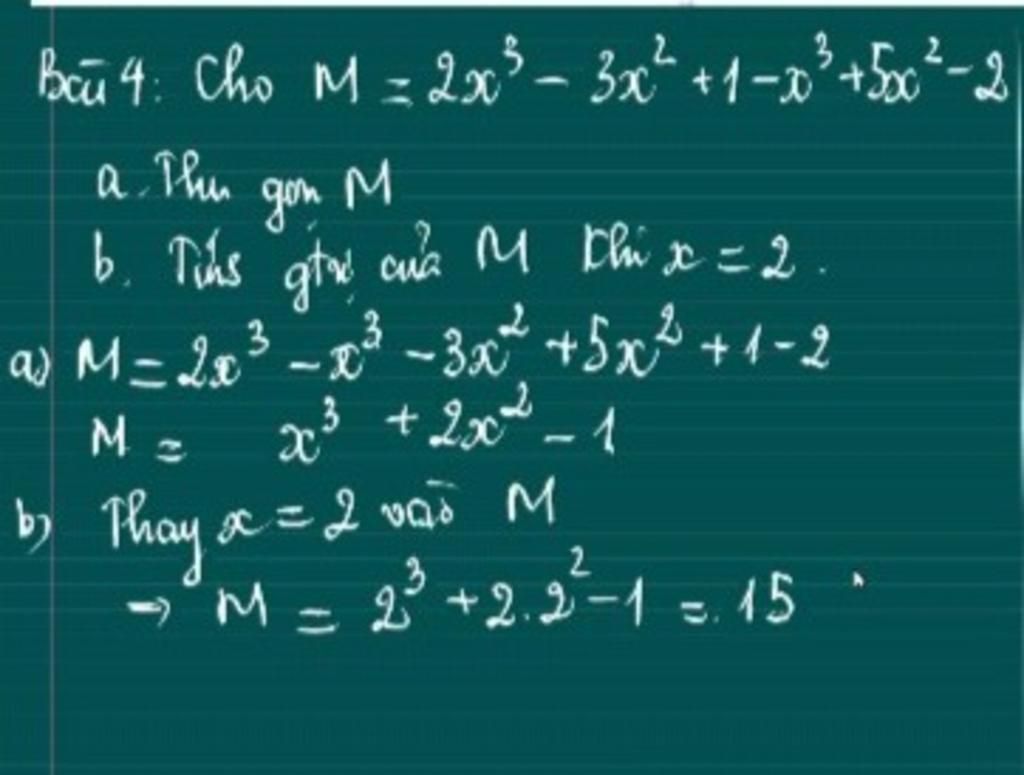 Bài 4: Cho M = 2x³ - 3x² + 1 - x³ + 5x² - 2
a. Thu gọn M
b. Tính gtrị của M khi x = 2.
a) M = 2x³ - x³ - 3x² + 5x² + 1 - 2
M = x³ + 2x² - 1
b) Thay x = 2 vào M
→ M = 2³ + 2.2² - 1 = 15